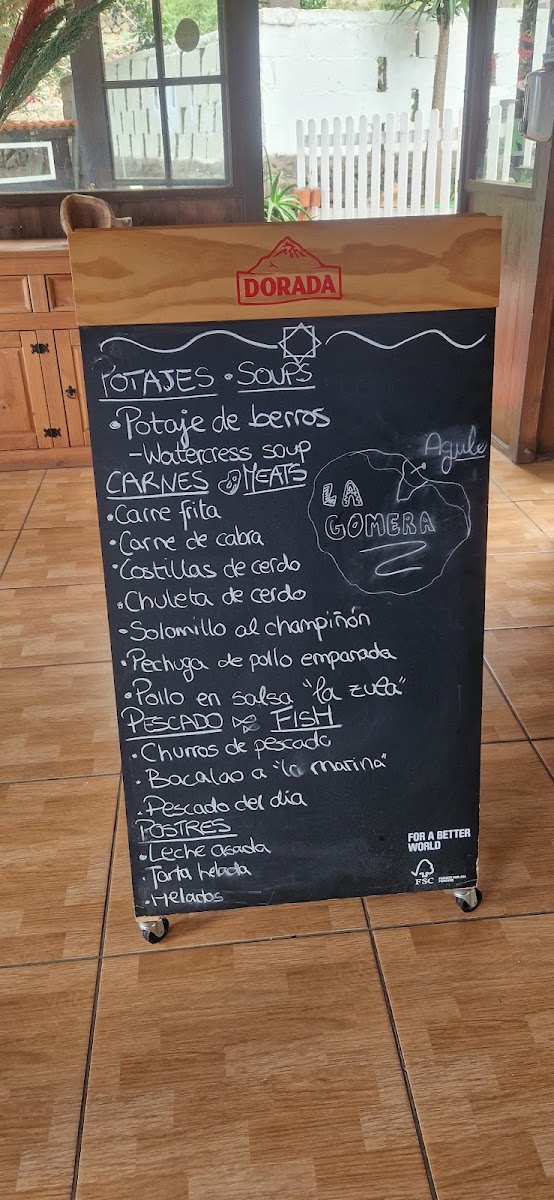 DORADA
POTAJES • SOUPS
• Potaje de berros
- Watercress soup
CARNES MEATS
• Carne frita
• Carne de cabra
• Costillas de cerdo
• Chuleta de cerdo
• Solomillo al champiñón
• Pechuga de pollo empanada
• Pollo en salsa "la zula"
PESCADO FISH
• Churros de pescado
• Bacalao a "la marina"
• Pescado del día
POSTRES
• Leche asada
• Tarta helada
• Helados
Agulo
LA
GOMERA
FOR A BETTER
WORLD
FSC